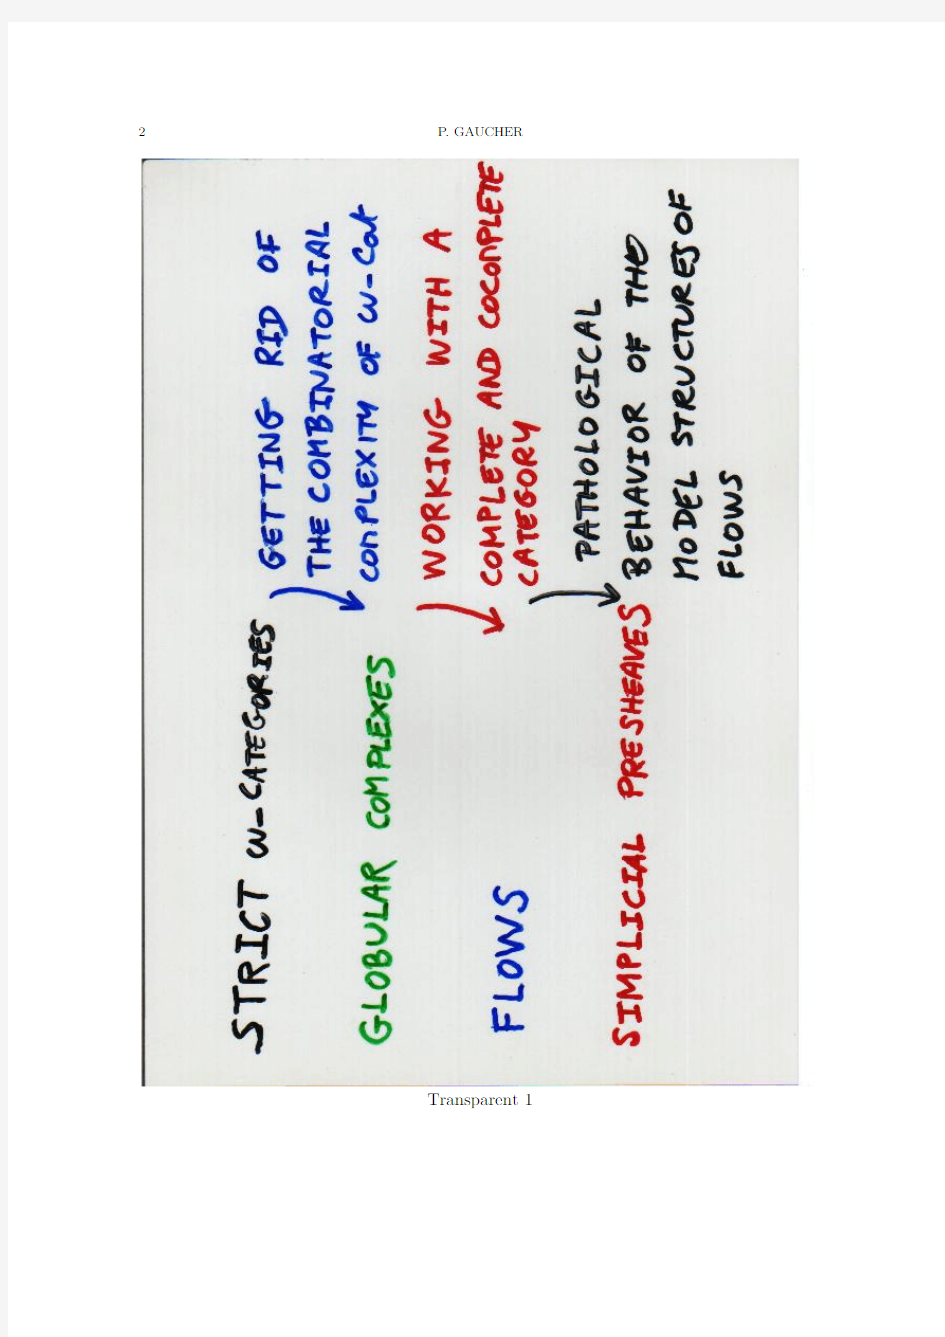 2
P. GAUCHER
STRICT ω-CATEGORIES
GETTING RID OF
THE COMBINATORIAL
COMPLEXITY OF ω-Cat
GLOBULAR COMPLEXES
WORKING WITH A
COMPLETE AND COCOMPLETE
CATEGORY
FLOWS
PATHOLOGICAL
BEHAVIOR OF THE
MODEL STRUCTURES OF
FLOWS
SIMPLICIAL PRESHEAVES
Transparent 1